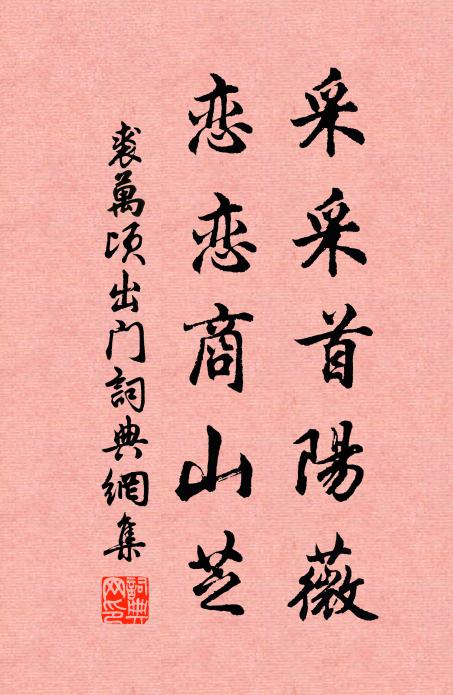 采采首陽薇
恋恋商山芝
裘萬頃出门詞典網集
詞典网印